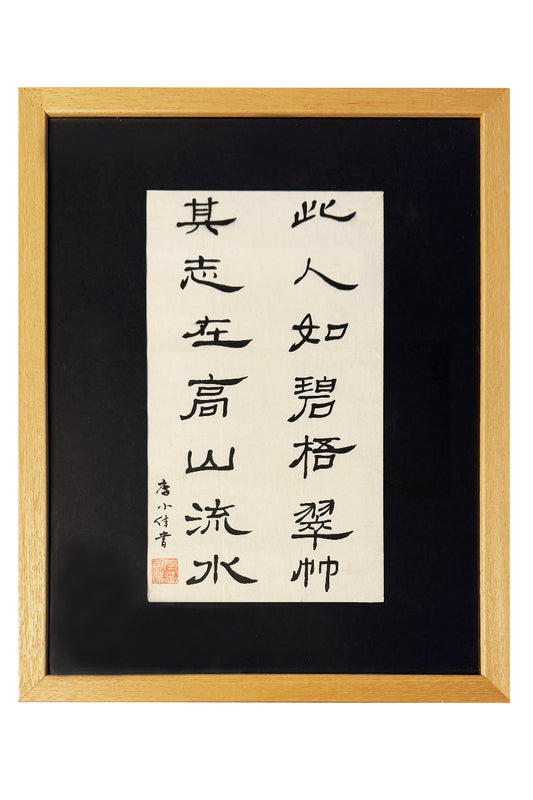 此人如碧梧翠竹
其志在高山流水
李小佳書